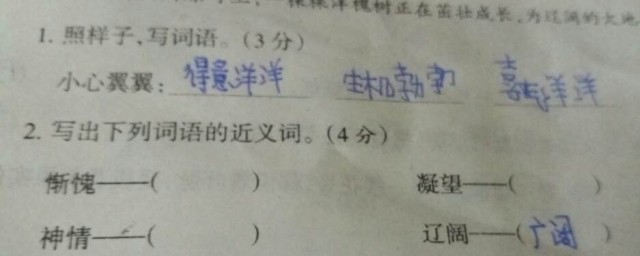 棵棵洋槐树正在茁壮成长,为辽阔的大地
1. 照样子,写词语。(3分)
小心翼翼: 得意洋洋 生机勃勃 喜气洋洋
2. 写出下列词语的近义词。(4分)
惭愧——( ) 凝望——( )
神情——( ) 辽阔——(广阔)